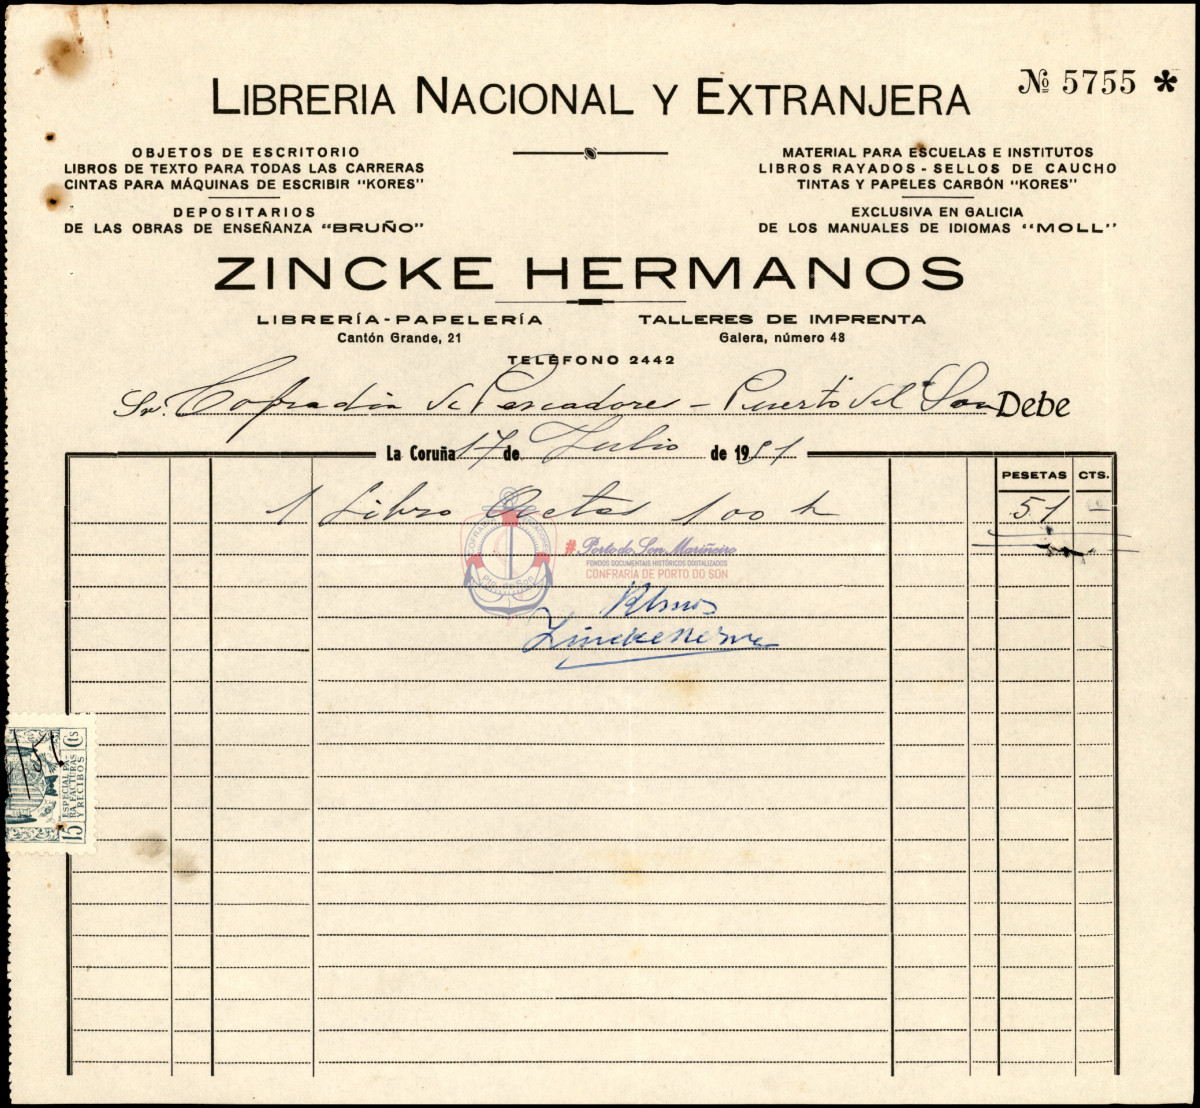 LIBRERIA NACIONAL Y EXTRANJERA
Nº 5755 *
OBJETOS DE ESCRITORIO
LIBROS DE TEXTO PARA TODAS LAS CARRERAS
CINTAS PARA MÁQUINAS DE ESCRIBIR "KORES"
DEPOSITARIOS
DE LAS OBRAS DE ENSEÑANZA "BRUÑO"
MATERIAL PARA ESCUELAS E INSTITUTOS
LIBROS RAYADOS - SELLOS DE CAUCHO
TINTAS Y PAPELES CARBÓN "KORES"
EXCLUSIVA EN GALICIA
DE LOS MANUALES DE IDIOMAS "MOLL"
ZINCKE HERMANOS
LIBRERÍA-PAPELERÍA
Cantón Grande, 21
TALLERES DE IMPRENTA
Galera, número 48
TELÉFONO 2442
Sr. Cofradia de Pescadores - Puerto del Son Debe
La Coruña 17 de Julio de 1951
PESETAS CTS.
1 Libro Actas 100 h 51 -
# Porto do Son Mariñeiro
FONDOS DOCUMENTAIS HISTÓRICOS DIXITALIZADOS
CONFRARÍA DE PORTO DO SON
Zincke Herma
15 Cts
ESPECIAL PA-
RA FACTURAS
Y RECIBOS